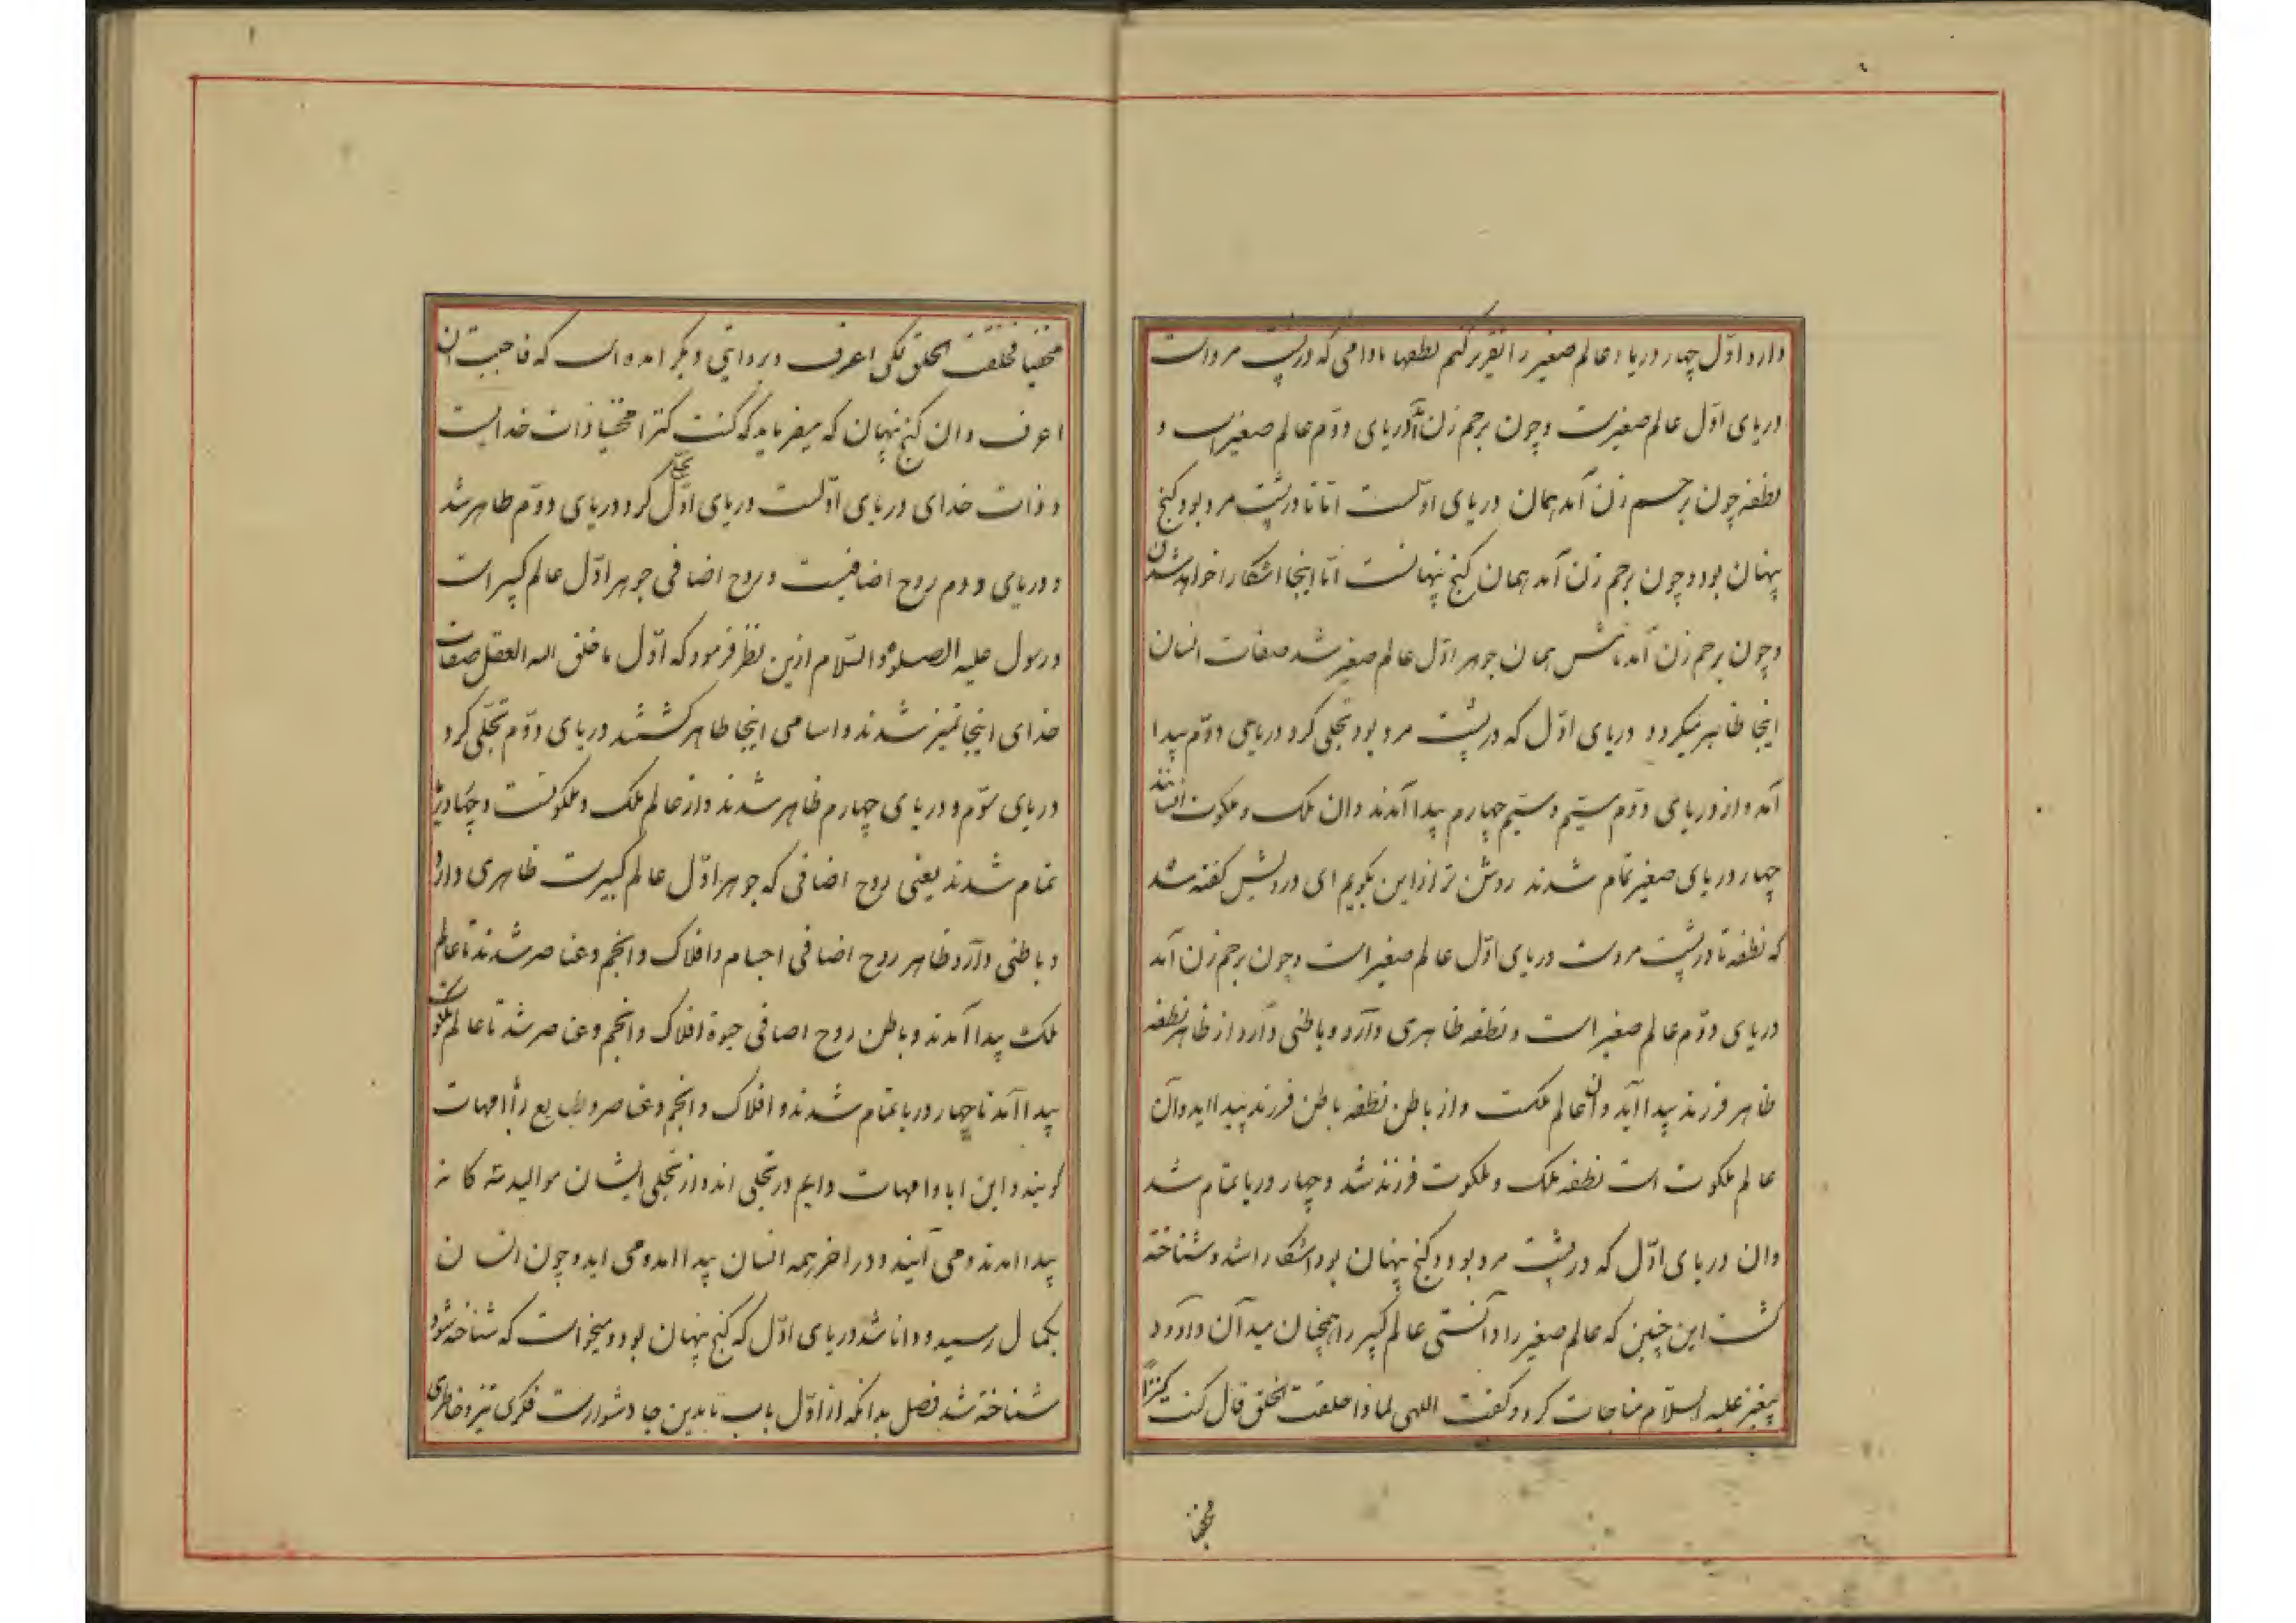 دارد اول چهار دریاء عالم صغیر را تقریر کنم نطفها مادامی که در پشت مرد است
دریای اوّل عالم صغیرست و چون برحم زن آمد دریای دوّم عالم صغیر است و
نطفه چون برحم زن آمد همان دریای اوّلست امّا تا در پشت مرد بود گنج
پنهان بود و چون برحم زن آمد همان گنج پنهانست امّا اینجا اشکارا خواهد شدن
و چون برحم زن آمد نامش همان جوهر اوّل عالم صغیر شد صفات انسان
اینجا ظاهر میکردد دریای اوّل که در پشت مرد بود تجلی کرد دریای دوّم پیدا
آمد و از دریای دوّم سیّم و سیّم چهارم پیدا آمدند وان ملک و ملکوت انسانند
چهار دریای صغیر تمام شدند روشن تر ازین بکویم ای درویش کفته شد
که نطفه تا در پشت مردست دریای اوّل عالم صغیر است و چون برحم زن آمد
دریای دوّم عالم صغیر است و نطفه ظاهری دارد و باطنی دارد از ظاهر نطفه
ظاهر فرزند پیدا آید وان عالم ملکست و از باطن نطفه باطن فرزند پیدا اید وآن
عالم ملکوت است نطفه ملک و ملکوت فرزند شد و چهار دریا تمام شد
وان دریای اوّل که در پشت مرد بود و کنج پنهان بود اشکارا شد و شناخته
کشت این چنین که عالم صغیر را دانستی عالم کبیر را همچنان میدان داود
پیغمبر علیه السلام مناجات کرد و کفت الهی لماذا خلقت الخلق قال کنت کنزاً
مخفیا
مخفیا فخلقت الخلق لکی اعرف و بروایتی دیگر امده است که فاحببت ان
اعرف وان کنج پنهان که میفرماید که کنت کنزا مخفیا ذات خدایست
و ذات خدای دریای اوّلست دریای اوّل تجلّی کرد دریای دوّم ظاهر شد
و دریای دوم روح اضافیست و روح اضافی جوهر اوّل عالم کبیر است
و رسول علیه الصلوة و السّلام ازین نظر فرمود که اوّل ما خلق الله العقل صفات
خدای اینجا تمیز شدند و اسامی اینجا ظاهر کشتند دریای دوّم تجلّی کرد
دریای سوّم و دریای چهارم ظاهر شدند وان عالم ملک و ملکوتست و چهار دریا
تمام شدند یعنی روح اضافی که جوهر اوّل عالم کبیرست ظاهری دارد
و باطنی دارد ظاهر روح اضافی اجسام و افلاک و انجم و عناصر شدند تا عالم
ملک پیدا آمدند و باطن روح اضافی حیوة افلاک و انجم و عناصر شد تا عالم ملکوت
پیدا آمد تا چهار دریا تمام شدند و افلاک و انجم و عناصر و طبایع را امهات
کویند و این ابا و امهات دایم در تجلی اند و از تجلی ایشان موالید سه کانه
پیدا امدند و می آیند و در اخر همه انسان پیدا امد و می اید و چون انسان
بکمال رسید و دانا شد دریای اوّل که کنج پنهان بود و میخواست که شناخته شود
شناخته شد فصل بدانکه از اوّل باب تا بدین جا دشوارست فکری تیز و خاطری